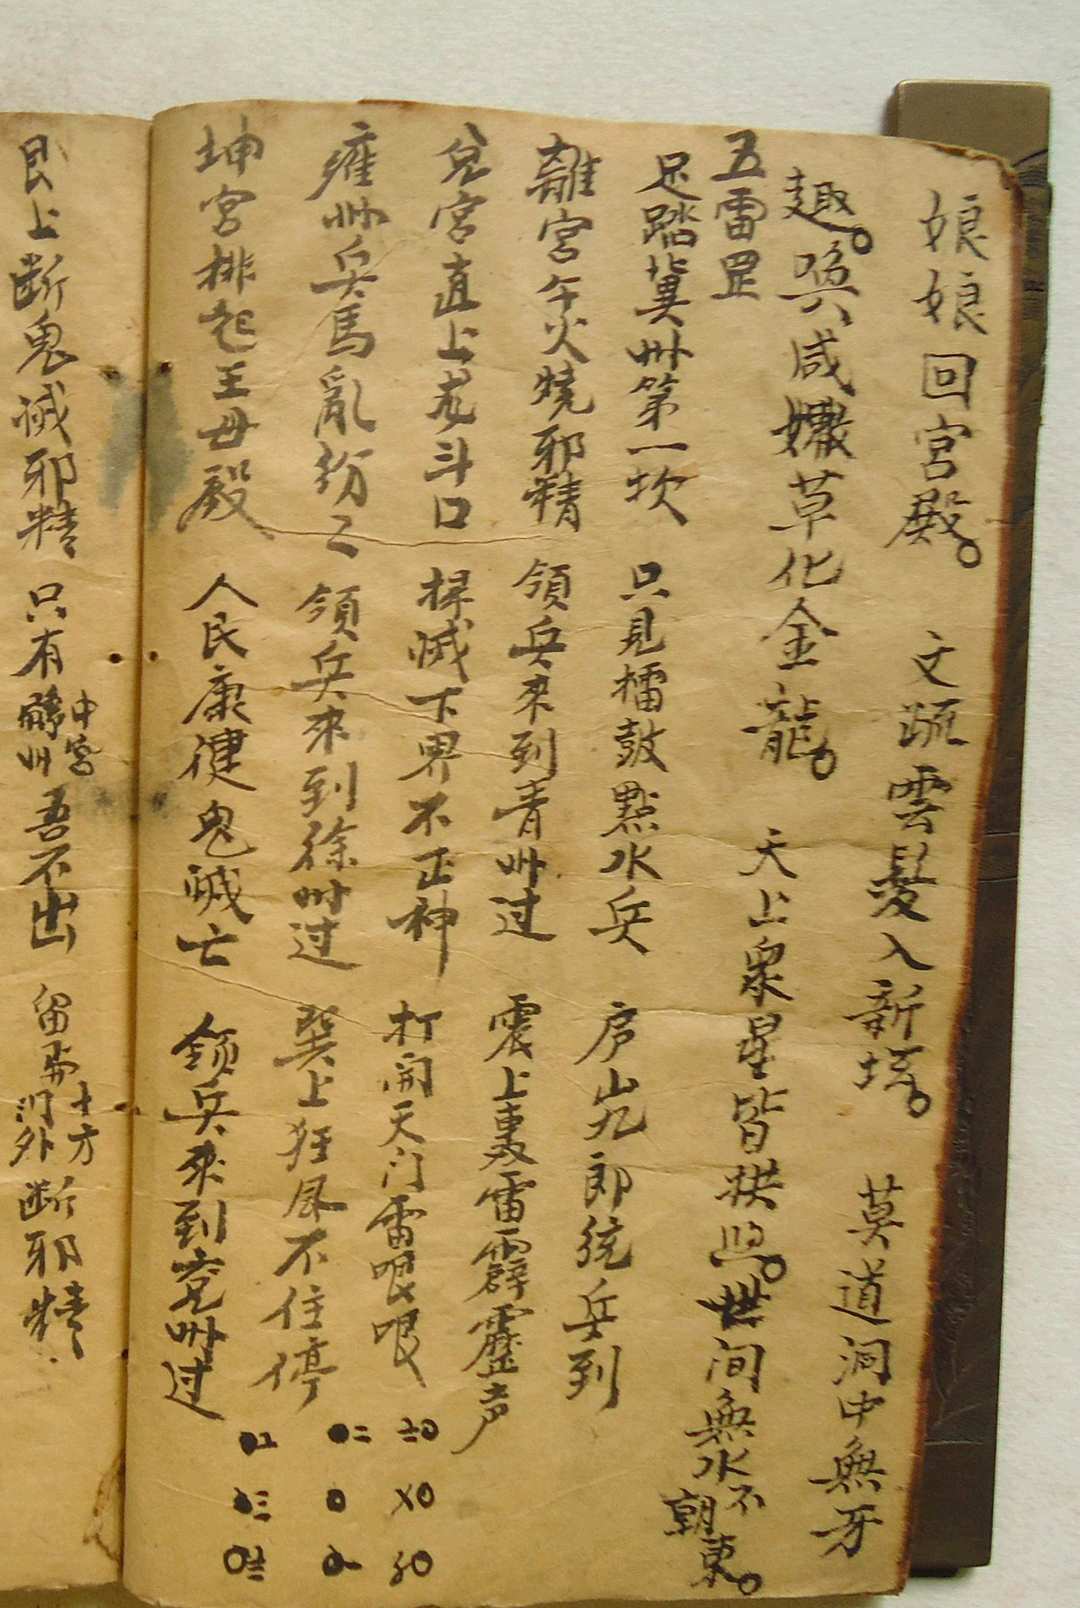 娘娘回宮殿。 文疏雲髮入新坛。 莫道洞中無牙
趣。喚咸孅草化金龍。 天上衆星皆拱照。世間無水不朝東。
五雷罡
足踏冀州第一坎 只見擂鼓點水兵 庐山九郎統兵到
離宮午火燒邪精 領兵來到青州过 震上轟雷霹靂声
兌宮直上老斗口 掃滅下界不正神 打開天门雷哏哏
雍州兵馬亂紛〻 領兵來到徐州过 巽上狂風不住停
坤宮排起王母殿 人民康健鬼滅亡 領兵來到兗州过
艮上断鬼滅邪精 只有中宮豫州吾不出 留 十方门外断邪精